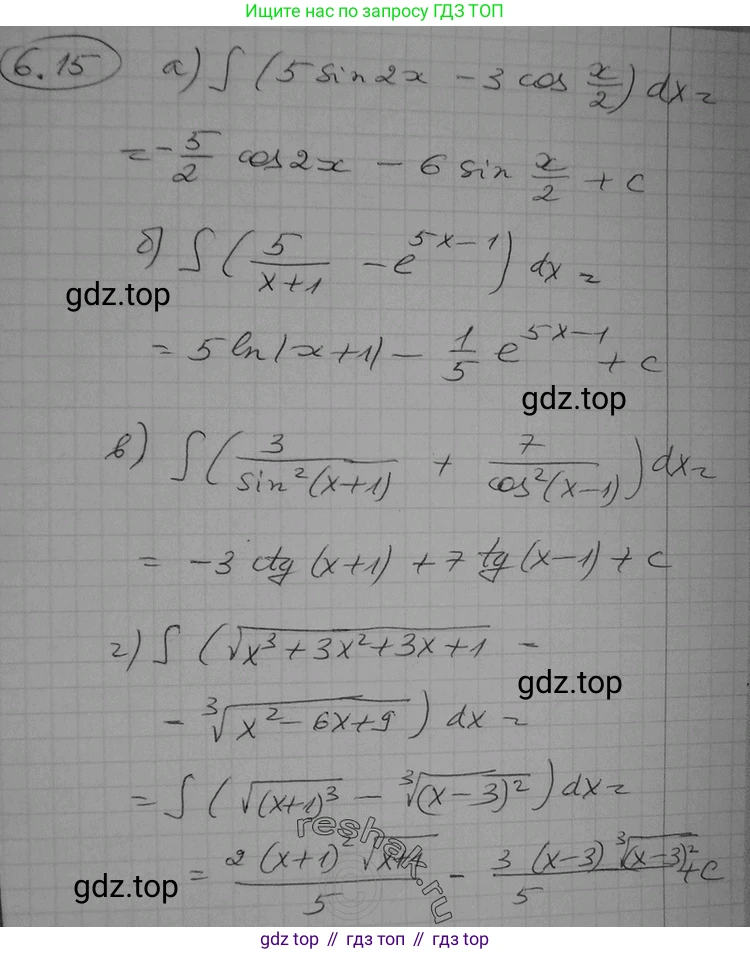 Ищите нас по запросу ГДЗ ТОП
6.15 а) ∫ (5 sin 2x - 3 cos x/2) dx =
= -5/2 cos 2x - 6 sin x/2 + c
б) ∫ (5/(x+1) - e^(5x-1)) dx =
gdz.top
= 5 ln|x+1| - 1/5 e^(5x-1) + c
gdz.top
в) ∫ (3/sin²(x+1) + 7/cos²(x-1)) dx =
= -3 ctg (x+1) + 7 tg (x-1) + c
г) ∫ (√(x³+3x²+3x+1) -
gdz.top
- ∛(x²-6x+9)) dx =
= ∫ (√(x+1)³ - ∛(x-3)²) dx =
reshak.ru
= 2(x+1)²√(x+1)/5 - 3(x-3)∛(x-3)²/5 + c
gdz.top
gdz top // гдз топ // gdz.top